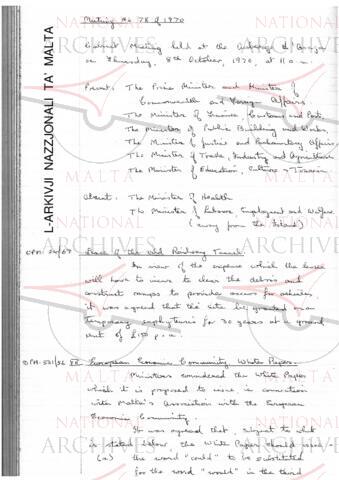 Meeting No 78 of 1970
Cabinet Meeting held at the Auberge d'Aragon
on Thursday, 8th October, 1970, at 11.0 a.m.
Present: The Prime Minister and Minister of
Commonwealth and Foreign Affairs
The Minister of Finance, Customs and Port
The Minister of Public Building and Works
The Minister of Justice and Parliamentary Affairs
The Minister of Trade, Industry and Agriculture
The Minister of Education, Culture & Tourism
Absent: The Minister of Health
The Minister of Labour, Employment and Welfare
(away from the Island)
OPM. /67 of the Old Railway Tunnel
In view of the expense which the lessee
will have to incur to clear the debris and
construct ramps to provide access for vehicles,
it was agreed that the site be granted on a
temporary emphyteusis for 30 years at a ground
rent of £150 p.a.
OPM. European Economic Community White Paper
Ministers considered the White Paper
which it is proposed to issue in connection
with Malta's Association with the European
Economic Community.
It was agreed that, subject to what
is stated below the White Paper should issue
(a) the word "could" to be substituted
for the word "would" in the third
L-ARKIVJI NAZZJONALI TA' MALTA
NATIONAL
ARCHIVES
MALTA